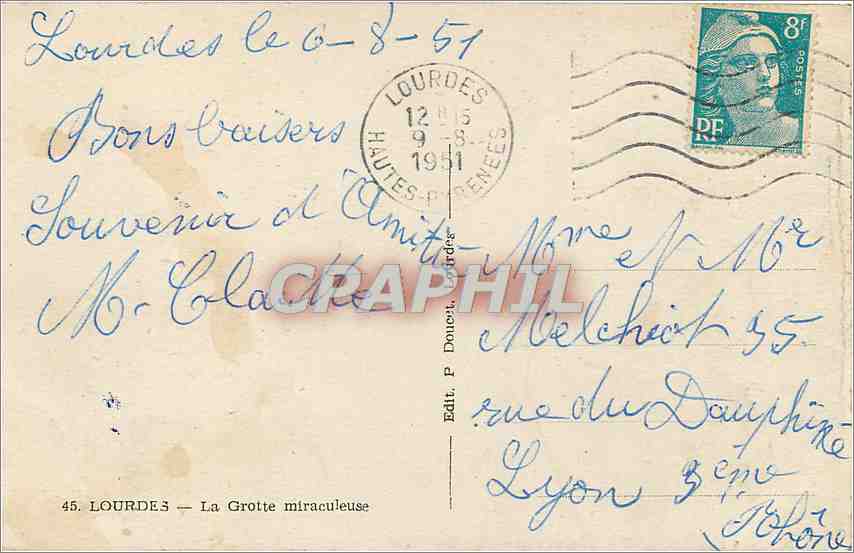 Lourdes le 6-8-51
Bons baisers
Souvenir d'Amitié
M. Clatte
8f
POSTES
RF
LOURDES
12 H 15
9 -8-
1951
HAUTES-PYRENEES
CRAPHIL
Mme et Mr
Melchiot 35
rue du Dauphiné
Lyon 3ème
Rhône
Edit. P Doucet, Lourdes
45. LOURDES — La Grotte miraculeuse